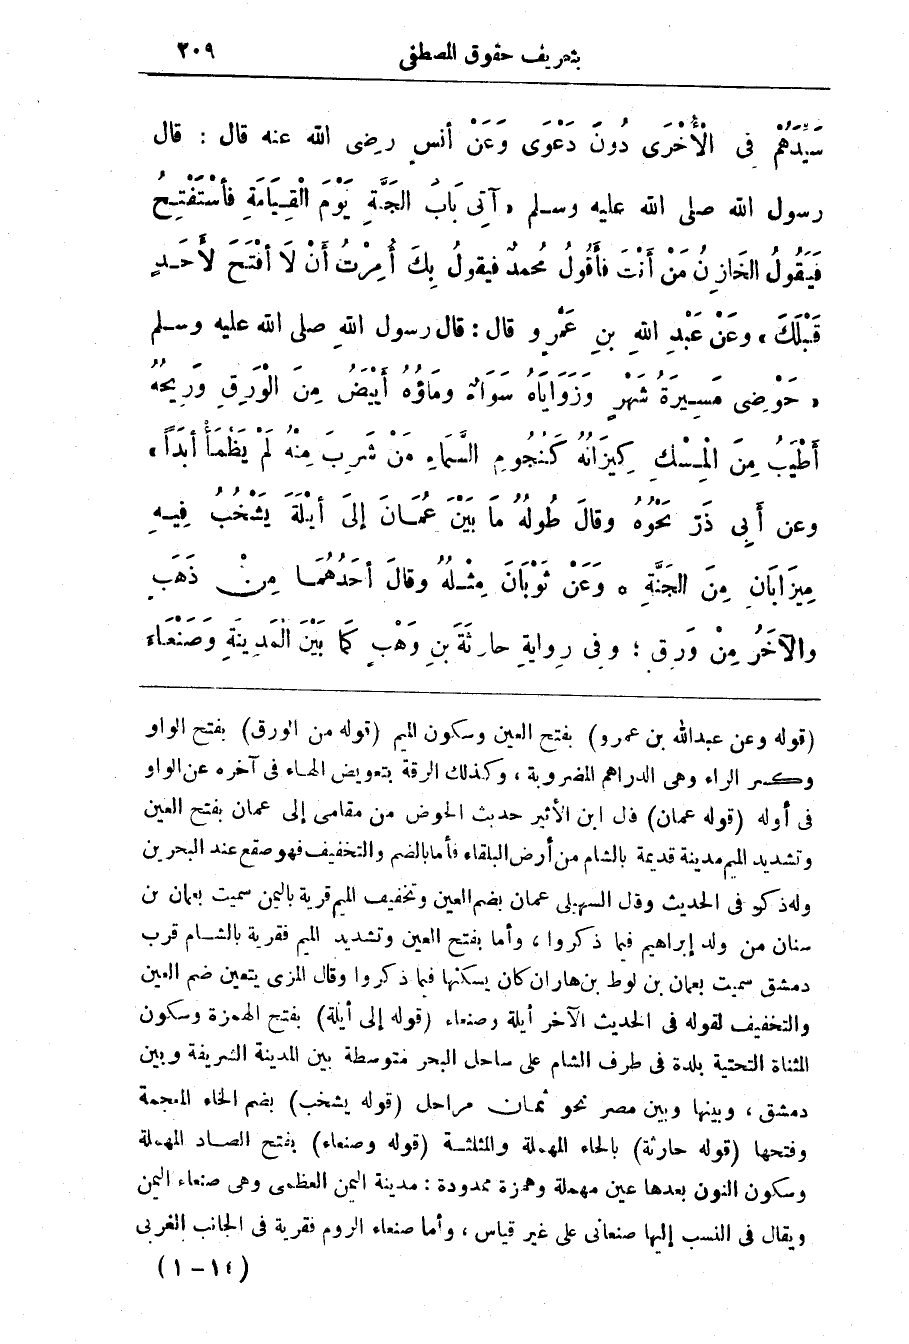 بتعريف حقوق المصطفى ٢٠٩
سَيِّدَهُمْ فِى الْأُخْرَى دُونَ دَعْوَى وَعَنْ أنسٍ رضى الله عنه قال : قال
رسول الله صلى الله عليه وسلم « آتِى بَابَ الجَنَّةِ يَوْمَ الْقِيَامَةِ فَأَسْتَفْتِحُ
فَيَقُولُ الخَازِنُ مَنْ أَنْتَ فأَقُولُ مُحمدٌ فيقولُ بِكَ أُمِرْتُ أَنْ لَا أَفْتَحَ لِأَحَدٍ
قَبْلَكَ » وعَنْ عَبْدِ اللهِ بنِ عَمْرٍو قال : قال رسول اللهِ صلى الله عليه وسلم
« حَوْضِى مَسِيرَةُ شَهْرٍ وَزَوَايَاهُ سَوَاءٌ وماؤُهُ أَبْيَضُ مِنَ الْوَرِقِ وَرِيحُهُ
أَطْيَبُ مِنَ الْمِسْكِ كِيزَانُهُ كَنُجُومِ السَّمَاءِ مَنْ شَرِبَ مِنْهُ لَمْ يَظْمَأْ أَبَدًا »
وعن أَبِى ذَرٍّ نَحْوُهُ وقالَ طُولُهُ مَا بَيْنَ عُمَانَ إلَى أَيْلَةَ يَشْخُبُ فِيهِ
مِيزَابَانِ مِنَ الجَنَّةِ ، وَعَنْ ثَوْبَانَ مِثْلُهُ وقالَ أحَدُهُمَا مِنْ ذَهَبٍ
والآخَرُ مِنْ وَرِقٍ ؛ وفى رِوايةِ حارثَةَ بنِ وَهْبٍ كَمَا بَيْنَ الْمَدِينَةِ وَصَنْعَاءَ
(قوله وعن عبدالله بن عمرو) بفتح العين وسكون الميم (قوله من الورق) بفتح الواو
وكسر الراء وهى الدراهم المضروبة ، وكذلك الرقة بتعويض الهاء فى آخره عن الواو
فى أوله (قوله عمان) قال ابن الأثير حديث الحوض من مقامى إلى عمان بفتح العين
وتشديد الميم مدينة قديمة بالشام من أرض البلقاء فأما بالضم والتخفيف فهو صقع عند البحرين
وله ذكر فى الحديث وقال السهيلى عمان بضم العين وتخفيف الميم قرية باليمن سميت بعمان بن
سنان من ولد إبراهيم فيما ذكروا ، وأما بفتح العين وتشديد الميم فقرية بالشام قرب
دمشق سميت بعمان بن لوط بن هاران كان يسكنها فيما ذكروا وقال المزى يتعين ضم العين
والتخفيف لقوله فى الحديث الآخر أيلة وصنعاء (قوله إلى أيلة) بفتح الهمزة وسكون
المثناة التحتية بلدة فى طرف الشام على ساحل البحر متوسطة بين المدينة الشريفة وبين
دمشق ، وبينها وبين مصر نحو ثمان مراحل (قوله يشخب) بضم الخاء المعجمة
وفتحها (قوله حارثة) بالحاء المهملة والمثلثة (قوله وصنعاء) بفتح الصاد المهملة
وسكون النون بعدها عين مهملة وهمزة ممدودة : مدينة اليمن العظمى وهى صنعاء اليمن
ويقال فى النسب إليها صنعانى على غير قياس ، وأما صنعاء الروم فقرية فى الجانب الغربى
(١٤ - ١)